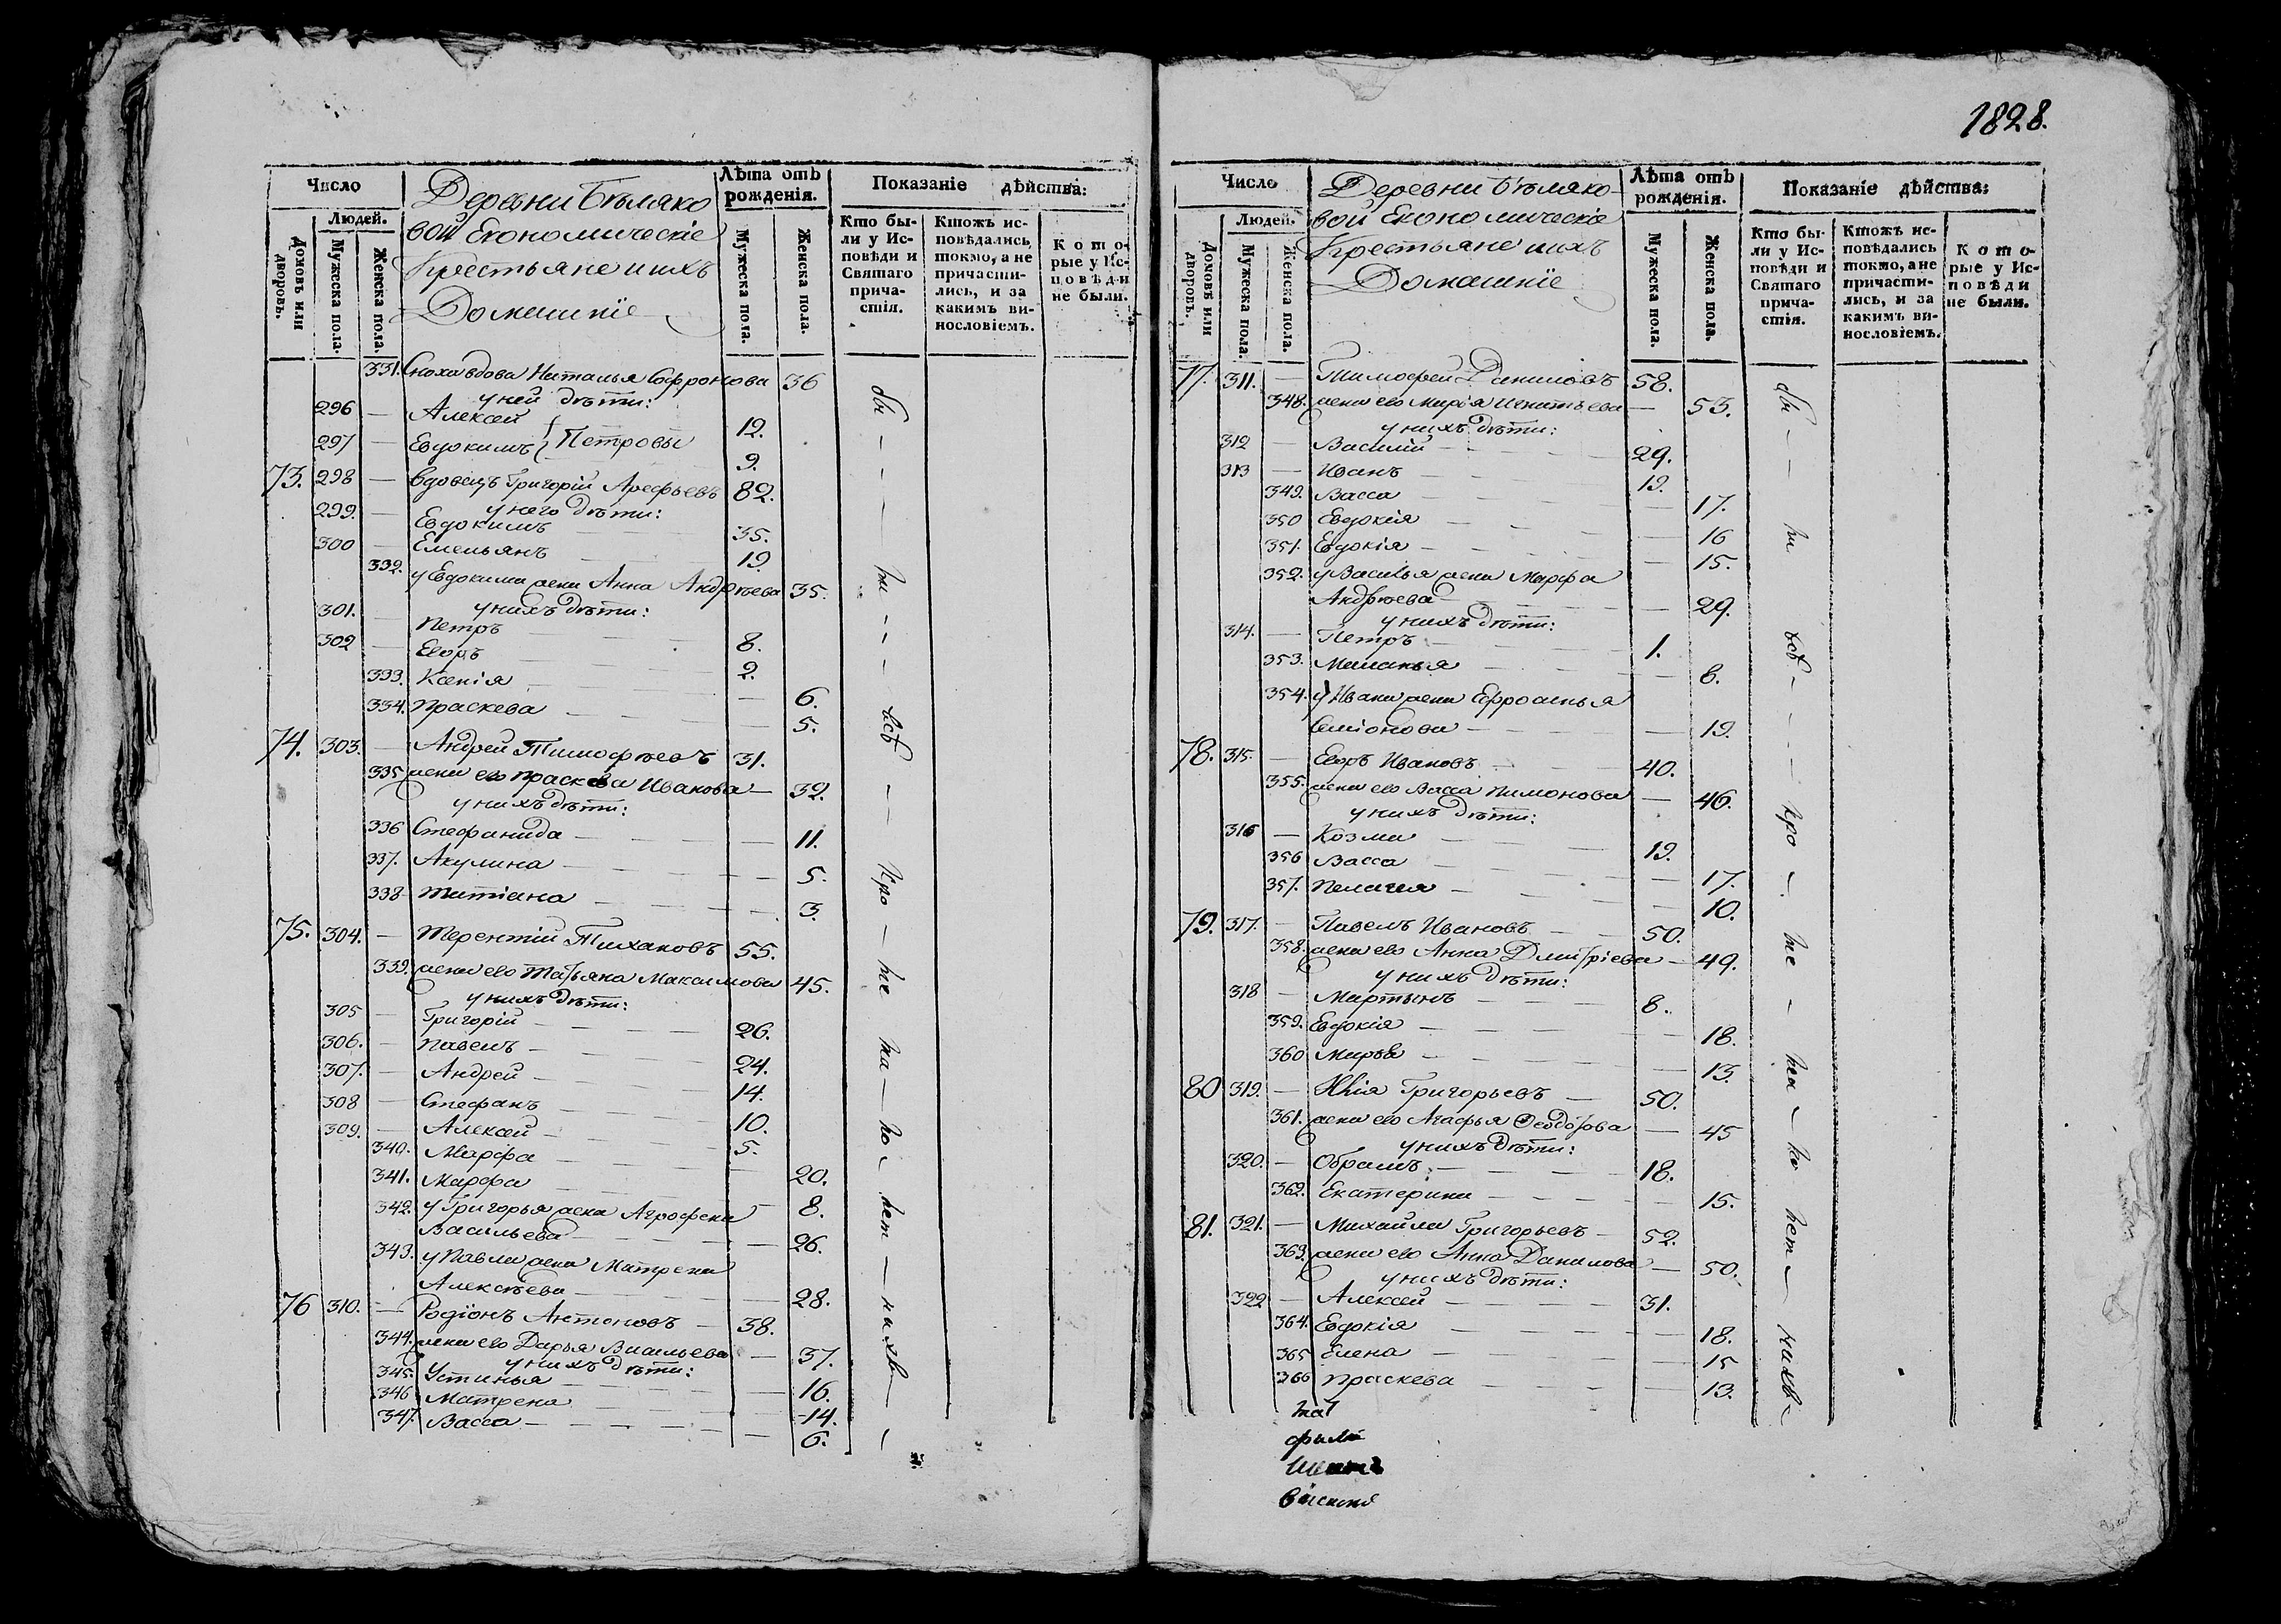 Число
Деревни Бѣляко
вой Економическіе
Крестьяне и ихъ
Домашніе
Лѣта отъ
рожденія.
Показаніе дѣйства:
Людей.
Домовъ или
дворовъ.
Мужеска пола.
Женска пола.
Мужеска пола.
Женска пола.
Кто бы-
ли у Ис-
повѣди и
Святаго
прича-
стія.
Ктожъ ис-
повѣдались
токмо, а не
причасти-
лись, и за
какимъ ви-
нословіемъ.
Кото-
рые у Ис-
повѣди
не были.
331. Сноха вдова Наталья Софронова 36
у ней дѣти:
296 — Алексей 12.
297 — Евдокимъ } Петровы 9.
73. 298 — вдовецъ Григорій Арефьевъ 82.
у него дѣти:
299. — Евдокимъ 35.
300 — Емельянъ 19.
332. у Евдокима жена Анна Андрѣева 35.
у нихъ дѣти:
301. — Петръ 8.
302 — Егоръ 2.
333. Ксенія — 6.
334. Праскева — 5.
74. 303. — Андрей Тимофѣевъ 31.
335 жена его Праскева Иванова — 32.
у нихъ дѣти:
336 Стефанида — 11.
337. Акулина — 5.
338 Татіана — 3.
75. 304. — Терентій Тихановъ 55.
339. жена его Татьяна Максимова 45.
у нихъ дѣти:
305 — Григорій 26.
306. — Павелъ 24.
307. — Андрей 14.
308 — Стефанъ 10.
309. — Алексей 5.
340. Марфа — 20.
341. Марфа — 8.
342. у Григорья жена Агрофена
Васильева — 26.
343. у Павла жена Матрена
Алексѣева — 28.
76 310. — Родіонъ Антоновъ — 38.
344. жена его Дарья Васильева — 37.
у нихъ дѣти:
345. Устинья — 16.
346 Матрена — 14.
347. Васса — 6.
бы — ли — всѣ — про — че — ка — по — нет — нихъ
1828.
Число
Деревни Бѣляко-
вой Економическіе
Крестьяне и ихъ
Домашніе
Лѣта отъ
рожденія.
Показаніе дѣйства:
Людей.
Домовъ или
дворовъ.
Мужеска пола.
Женска пола.
Мужеска пола.
Женска пола.
Кто бы-
ли у Ис-
повѣди и
Святаго
прича-
стія.
Ктожъ ис-
повѣдались
токмо, а не
причасти-
лись, и за
какимъ ви-
нословіемъ.
Кото-
рые у Ис-
повѣди
не были.
77. 311. — Тимофей Даниловъ 58.
348. жена его Марія Игнатьева — 53.
у нихъ дѣти:
312 — Василій 29.
313 — Иванъ 19.
349. Васса — 17.
350 Евдокія — 16
351. Евдокія — 15.
352. у Василья жена Марфа
Андрѣева — 29.
у нихъ дѣти:
314. — Петръ 1.
353. Маланья — 6.
354. у Ивана жена Ефросинья
Семіонова — 19.
78. 315. — Егоръ Ивановъ 40.
355. жена его Васса Пимонова — 46.
у нихъ дѣти:
316 — Козма 19.
356 Васса — 17.
357. Пелагия — 10.
79. 317. — Павелъ Ивановъ 50.
358. жена его Анна Дмитріева — 49.
у нихъ дѣти:
318 — Мартынъ 8.
359. Евдокія — 18.
360 Марья — 13.
80 319. — Илія Григорьевъ — 50.
361. жена его Агафья Феодотова — 45
у нихъ дѣти:
320. — Обрамъ 18.
362. Екатерина — 15.
81. 321. — Михайла Григорьевъ — 52.
363. жена его Анна Данилова — 50.
у нихъ дѣти:
322 — Алексей 31.
364. Евдокія — 18.
365 Елена — 15
366 Праскева — 13.